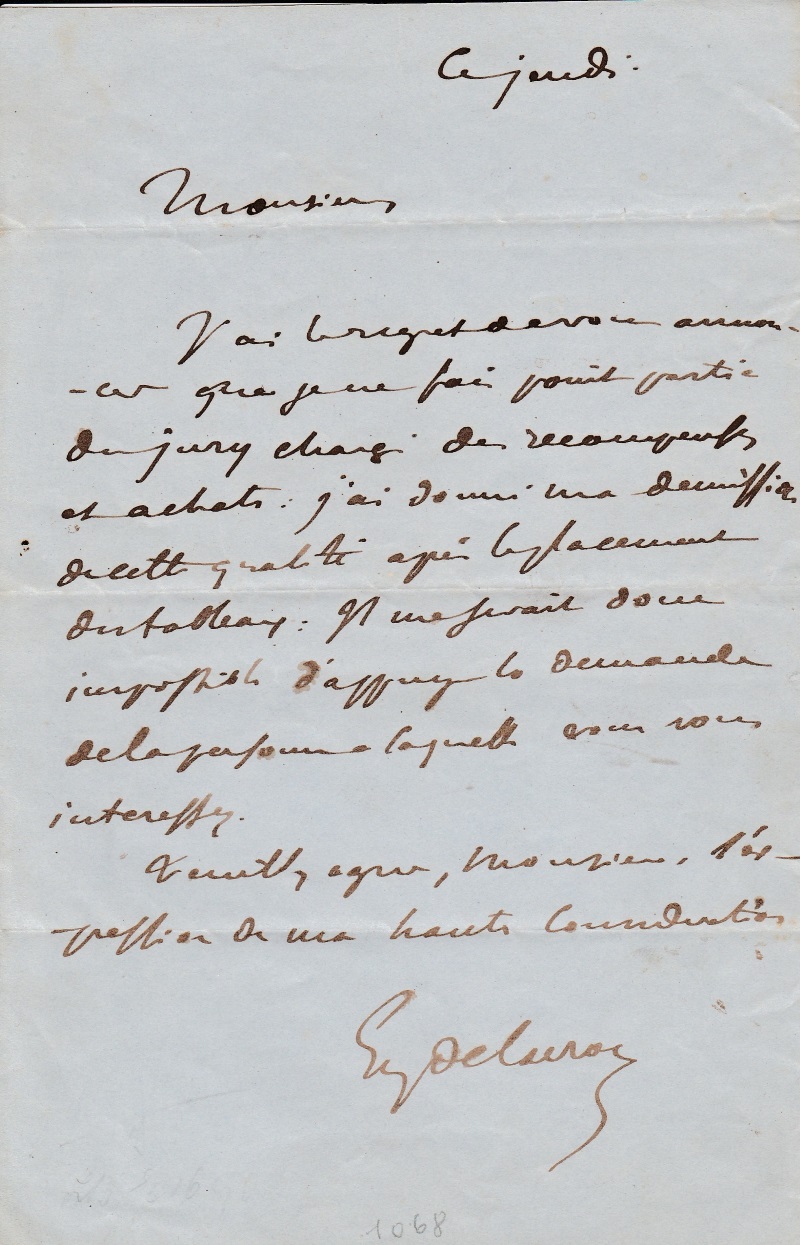 Ce jeudi.
Monsieur
J'ai le regret de vous annon-
-cer que je ne fais point partie
du jury chargé des recompenses
et achats: j'ai donné ma demission
de cette qualité après le placement
des tableaux. Il me serait donc
impossible d'appuyer la demande
de la personne a laquelle vous vous
interessez.
Veuillez agreer, Monsieur, l'ex-
-pression de ma haute consideration
Eug Delacroix
1068